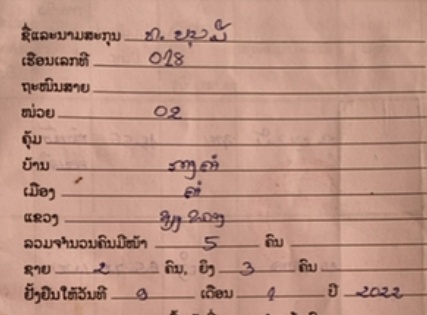 ຊື່ແລະນາມສະກຸນ ທ. ບຸນມີ
ເຮືອນເລກທີ 018
ຖະໜົນສາຍ
ໜ່ວຍ 02
ຄຸ້ມ
ບ້ານ
ເມືອງ ຄຳ
ແຂວງ ຊຽງຂວາງ
ລວມຈຳນວນຄົນມີໜ້າ 5 ຄົນ
ຊາຍ 2 ຄົນ, ຍິງ 3 ຄົນ
ຢັ້ງຢືນໃຫ້ວັນທີ 9 ເດືອນ 1 ປີ 2022